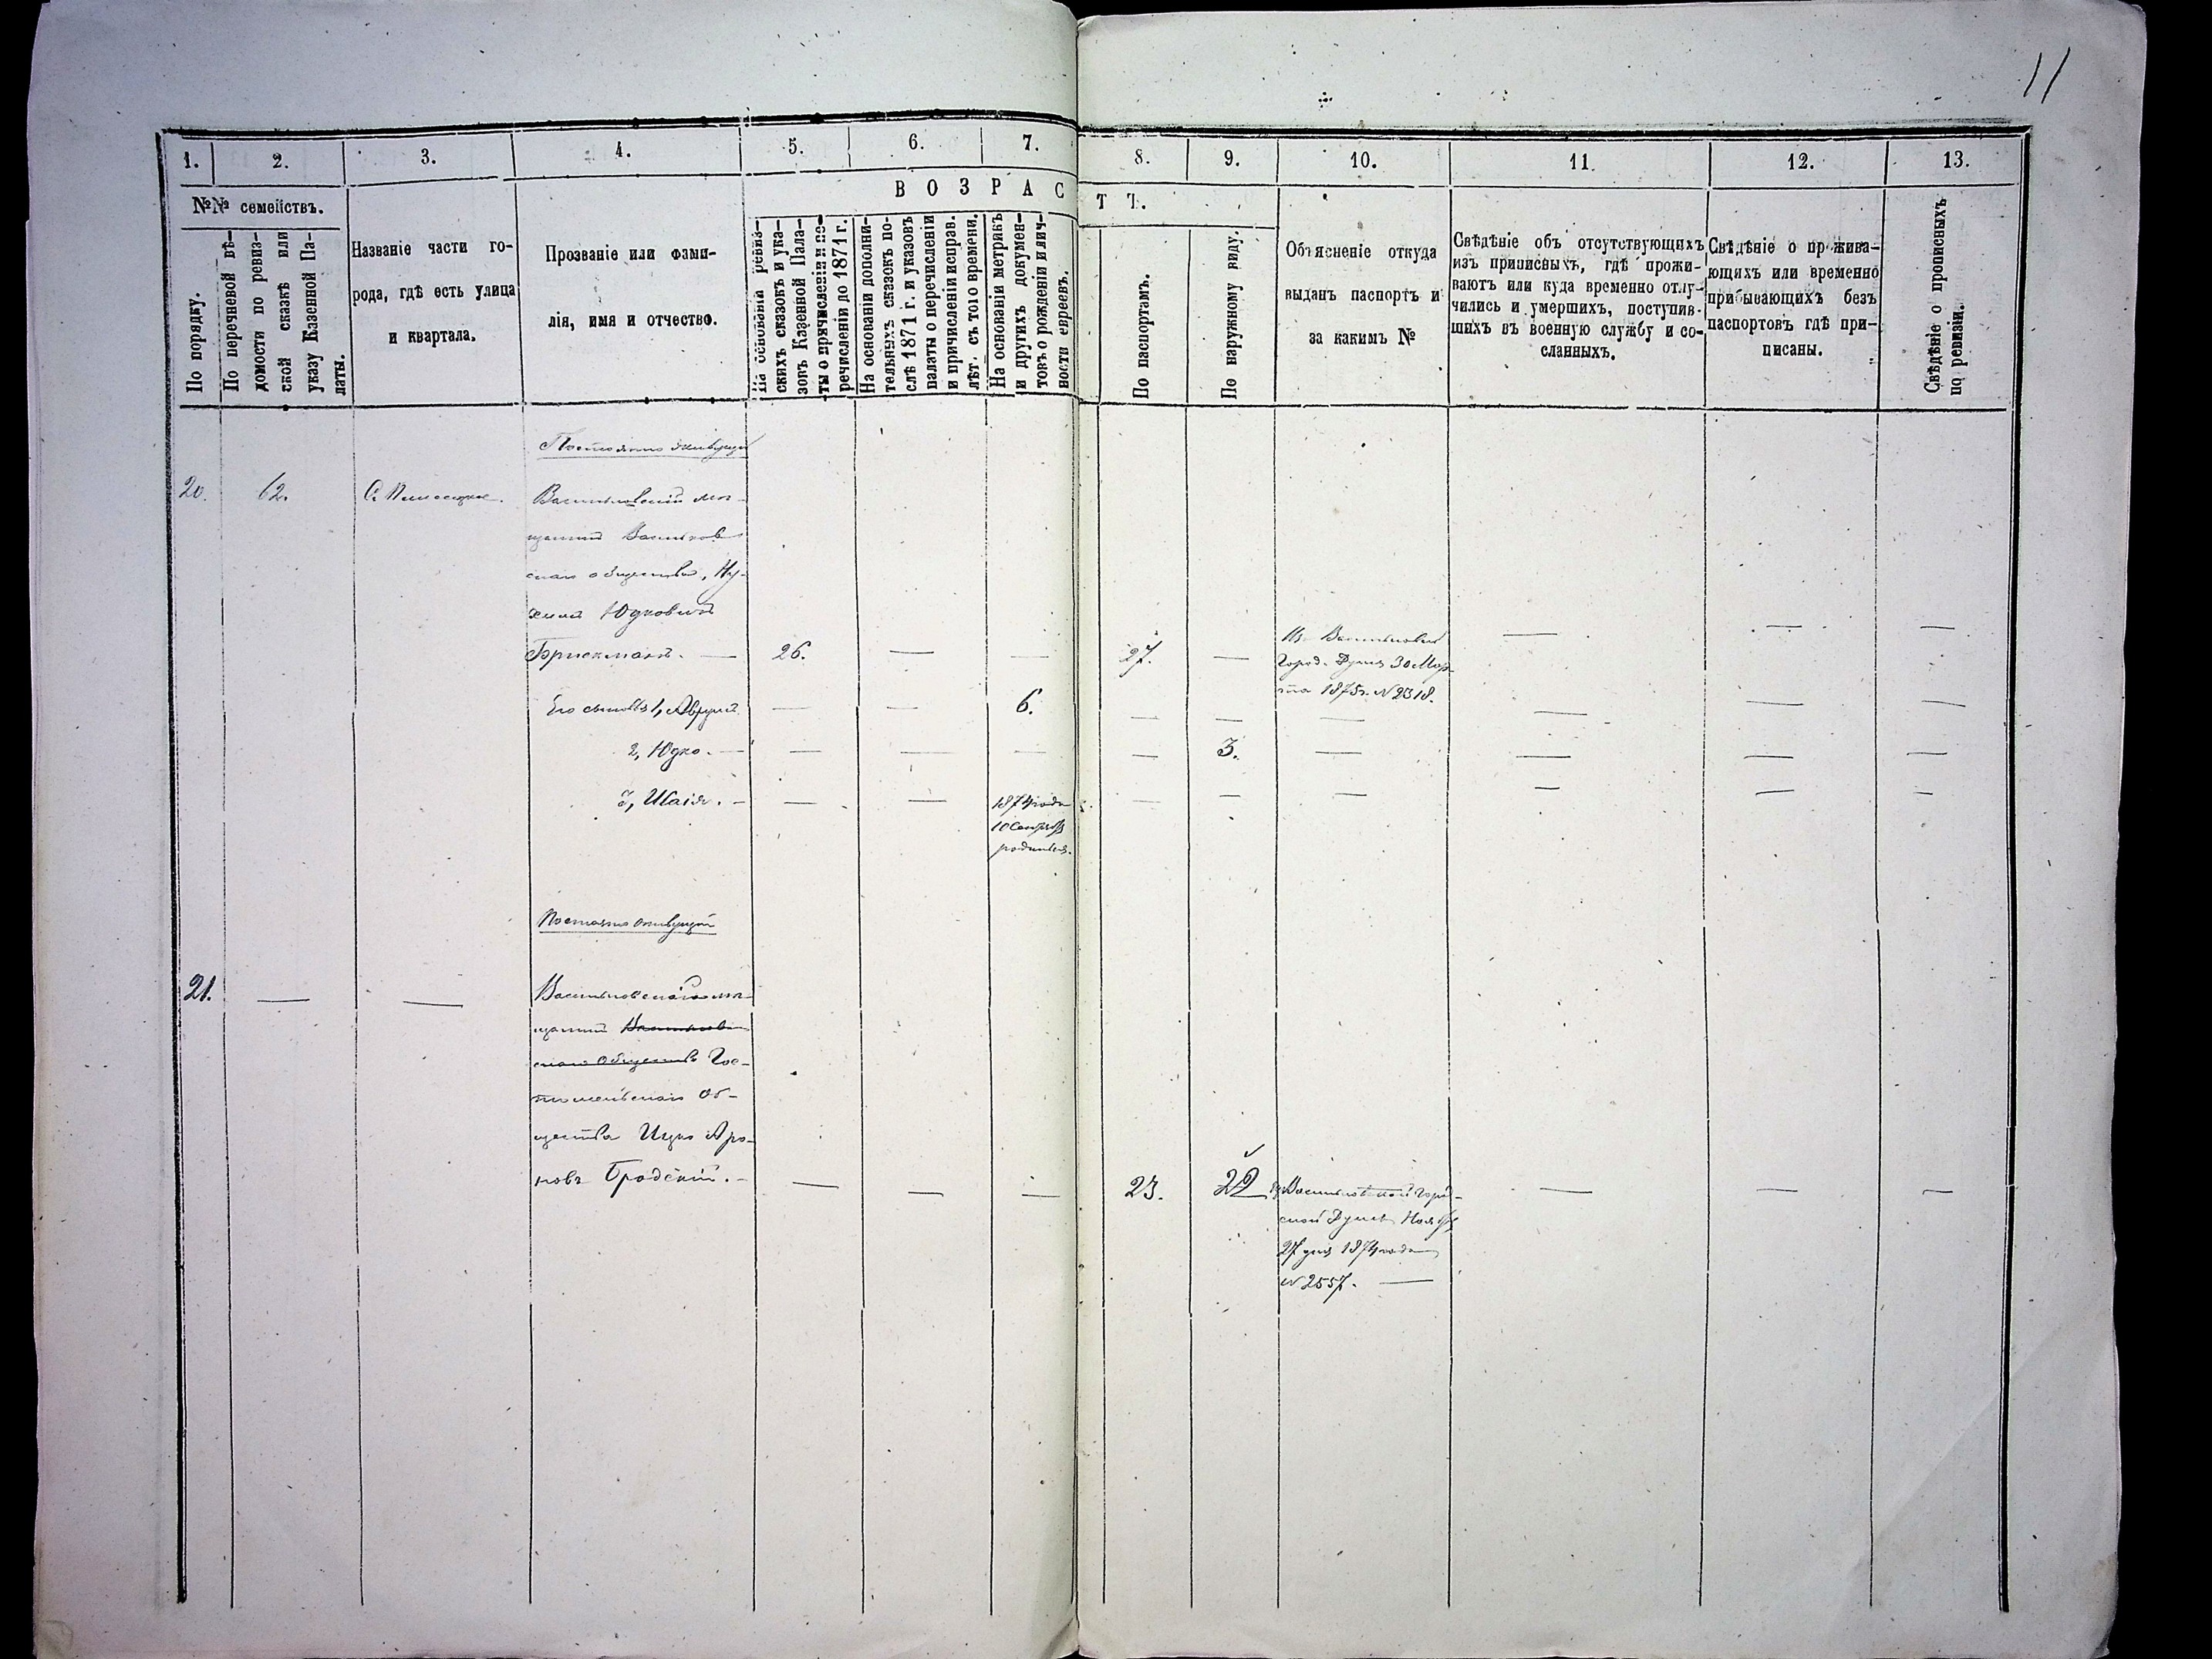 11
1. 2. 3. 4. 5. 6. 7. 8. 9. 10. 11 12. 13.
№№ семействъ.
ВОЗРАСТЪ.
По порядку.
По перечневой вѣ-
домости по ревиз-
ской сказкѣ или
указу Казенной Па-
латы.
Названіе части го-
рода, гдѣ есть улица
и квартала.
Прозваніе или фами-
лія, имя и отчество.
На основаніи ревиз-
скихъ сказокъ и ука-
зовъ Казенной Пала-
ты о причисленіи и пе-
речисленіи до 1871 г.
На основаніи дополни-
тельныхъ сказокъ по-
слѣ 1871 г. и указовъ
палаты о перечисленіи
и причисленіи исправ.
лѣт. съ того времени.
На основаніи метрикъ
и другихъ докумен-
товъ о рожденіи и лич-
ности евреевъ.
По паспортамъ.
По наружному виду.
Объясненіе откуда
выданъ паспортъ и
за какимъ №
Свѣдѣніе объ отсутствующихъ
изъ приписныхъ, гдѣ прожи-
ваютъ или куда временно отлу-
чились и умершихъ, поступив-
шихъ въ военную службу и со-
сланныхъ.
Свѣдѣніе о прожива-
ющихъ или временно
прибывающихъ безъ
паспортовъ гдѣ при-
писаны.
Свѣдѣніе о прописныхъ
по ревизіи.
Постоянно живущій
20. 62. Васильковскій мѣ-
щанинъ Васильков
скаго общества, Ну-
химъ Юдковичъ
Брискманъ. — 26. — — 27. —
Изъ Васильковск
Город. Думы 30 Мар-
та 1875 г. № 2318.
— — —
Его сыновья 1, Аврумъ — — 6. — — — — — —
2, Юдко. — — — — — 3. — — — —
3, Шаія. — — — 1874 года
10 Сентября
родился.
— — — — — —
Постоянно живущій
21. — — Васильковскаго мѣ-
щанинъ Васильков
скаго Общества Гос-
томельскаго Об-
щества Ицко Аро-
новъ Бродскій. — — — — 23. 22
Изъ Васильковской Город-
ской Думы Ноября
27 дня 1874 года
№ 2557. —
— — —